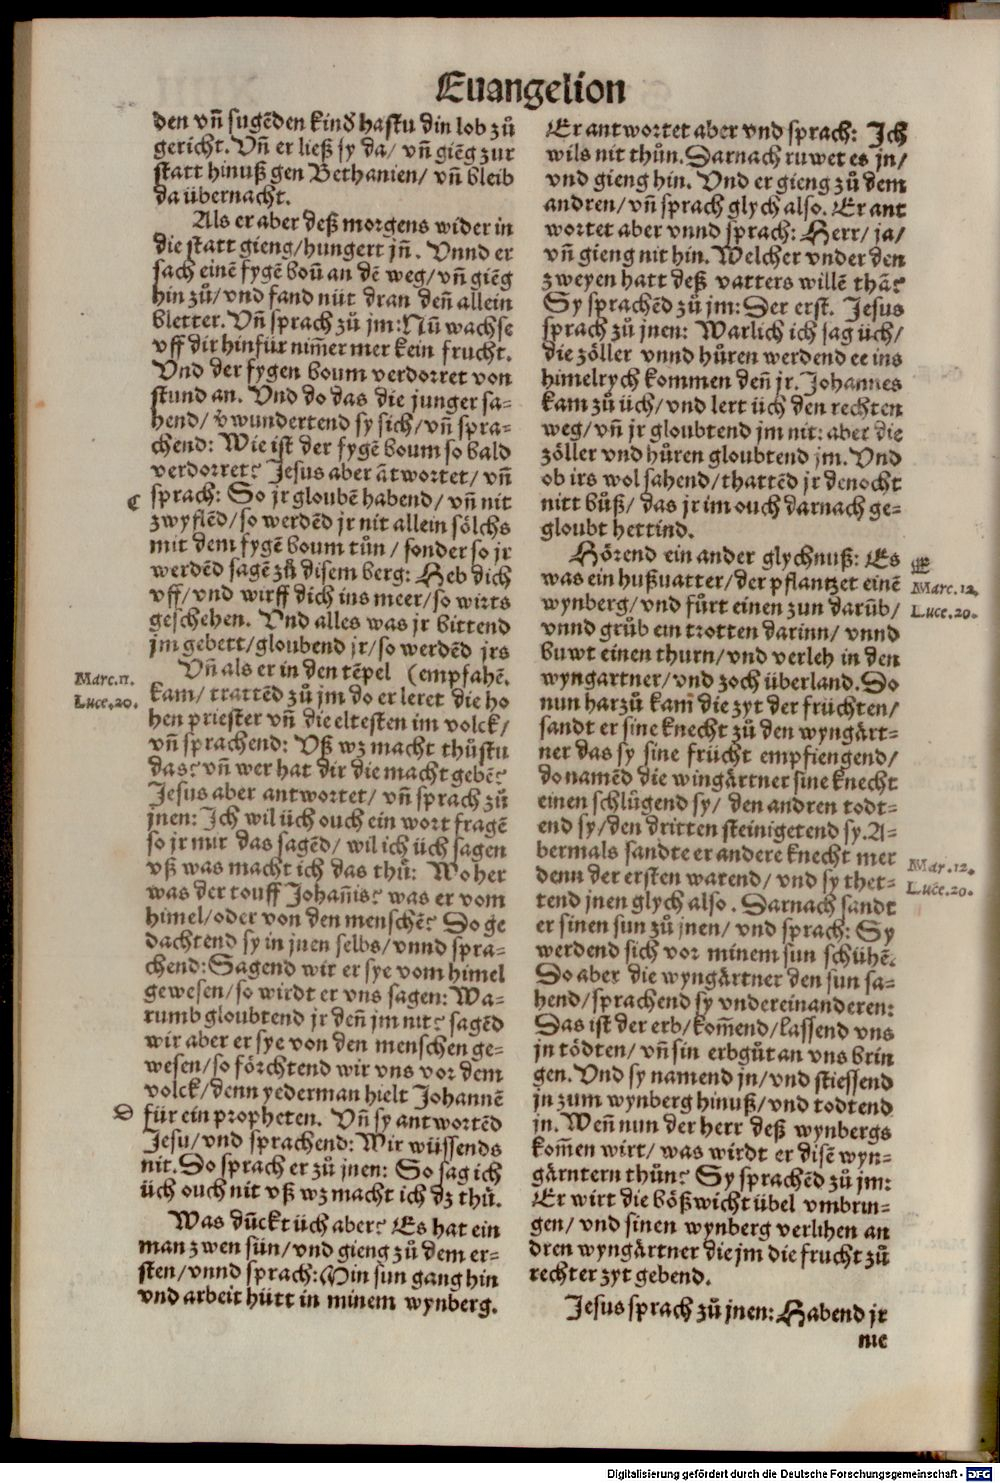 Euangelion
den vñ sugẽden kind hastu din lob zů
gericht. Vñ er ließ sy da/ vñ giẽg zur
statt hinuß gen Bethanien/ vñ bleib
da übernacht.
Als er aber deß morgens wider in
die statt gieng/hungert jñ. Vnnd er
sach einẽ fygẽ boũ an dẽ weg/vñ giẽg
hin zů/vnd fand nüt dran deñ allein
bletter. Vñ sprach zů jm: Nũ wachse
vff dir hinfür nim̃er mer kein frucht.
Vnd der fygen boum verdorret von
stund an. Vnd do das die junger sa-
hend/ v̊wundertend sy sich/vñ spra-
chend: Wie ist der fygẽ boum so bald
verdorret? Jesus aber ãtwortet/ vñ
C
sprach: So jr gloubẽ habend/ vñ nit
zwyflẽd/so werdẽd jr nit allein sölchs
mit dem fygẽ boum tůn/ sonder so jr
werdẽd sagẽ zů disem berg: Heb dich
vff/vnd wirff dich ins meer/so wirts
geschehen. Vnd alles was jr bittend
jm gebett/gloubend jr/so werdẽd jrs
Marc.11.
Luce.20.
Vñ als er in den tẽpel (empfahẽ.
kam/ trattẽd zů jm do er leret die ho
hen priester vñ die eltesten im volck/
vñ sprachend: Vß wz macht thůstu
das? vñ wer hat dir die macht gebẽ?
Jesus aber antwortet/ vñ sprach zů
jnen: Ich wil üch ouch ein wort fragẽ
so jr mir das sagẽd/ wil ich üch sagen
vß was macht ich das thů: Woher
was der touff Johañis? was er vom
himel/oder von den menschẽ? Do ge
dachtend sy in jnen selbs/vnnd spra-
chend: Sagend wir er sye vom himel
gewesen/so wirdt er vns sagen: Wa-
rumb gloubtend jr deñ jm nit? sagẽd
wir aber er sye von den menschen ge-
wesen/so förchtend wir vns vor dem
volck/denn yederman hielt Johannẽ
D
für ein propheten. Vñ sy antwortẽd
Jesu/vnd sprachend: Wir wüssends
nit. Do sprach er zů jnen: So sag ich
üch ouch nit vß wz macht ich dz thů.
Was dũckt üch aber? Es hat ein
man zwen sün/vnd gieng zů dem er-
sten/vnnd sprach: Min sun gang hin
vnd arbeit hütt in minem wynberg.
Er antwortet aber vnd sprach: Ich
wils nit thůn. Darnach ruwet es jn/
vnd gieng hin. Vnd er gieng zů dem
andren/vñ sprach glych also. Er ant
wortet aber vnnd sprach: Herr/ ja/
vñ gieng nit hin. Welcher vnder den
zweyen hatt deß vatters willẽ thã?
Sy sprachẽd zů jm: Der erst. Jesus
sprach zů jnen: Warlich ich sag üch/
die zöller vnnd hůren werdend ee ins
himelrych kommen deñ jr. Johannes
kam zů üch/vnd lert üch den rechten
weg/vñ jr gloubtend jm nit: aber die
zöller vnd hůren gloubtend jm. Vnd
ob irs wol sahend/thattẽd jr denocht
nitt bůß/ das jr im ouch darnach ge-
gloubt hettind.
Hörend ein ander glychnuß: Es
Marc.12.
Luce.20.
was ein hußuatter/der pflantzet einẽ
wynberg/vnd fůrt einen zun darũb/
vnnd grůb ein trotten darinn/ vnnd
buwt einen thurn/vnd verleh in den
wyngartner/vnd zoch überland. Do
nun harzů kam die zyt der früchten/
sandt er sine knecht zů den wyngärt-
ner das sy sine frücht empfiengend/
do namẽd die wingärtner sine knecht
einen schlůgend sy/ den andren todt-
end sy/den dritten steinigetend sy. A-
bermals sandte er andere knecht mer
Mar.12.
Lucẽ.20.
denn der ersten warend/vnd sy thet-
tend jnen glych also. Darnach sandt
er sinen sun zů jnen/ vnd sprach: Sy
werdend sich vor minem sun schühẽ.
Do aber die wyngärtner den sun sa-
hend/sprachend sy vndereinanderen:
Das ist der erb/kom̃end/lassend vns
jn tödten/ vñ sin erbgůt an vns brin
gen. Vnd sy namend jn/vnd stiessend
jn zum wynberg hinuß/vnd todtend
jn. Weñ nun der herr deß wynbergs
kom̃en wirt/ was wirdt er disẽ wyn-
gärntern thůn? Sy sprachẽd zů jm:
Er wirt die bößwicht übel vmbrin-
gen/ vnd sinen wynberg verlihen an
dren wyngärtner die jm die frucht zů
rechter zyt gebend.
Jesus sprach zů jnen: Habend jr
nie
Digitalisierung gefördert durch die Deutsche Forschungsgemeinschaft - DFG